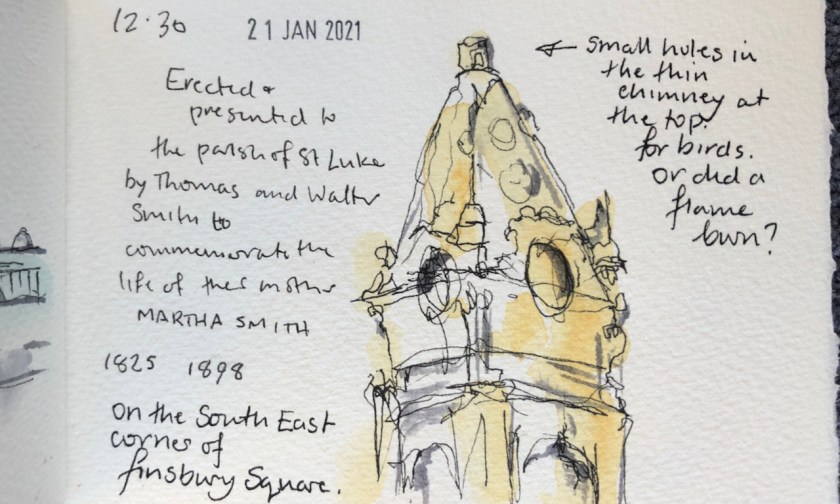 12.30
21 JAN 2021
Erected &
presented to
the parish of St Luke
by Thomas and Walter
Smith to
commemorate the
life of their mother
MARTHA SMITH
1825 1898
on the South East
corner of
finsbury Square.
← small holes in
the thin
chimney at
the top.
for birds.
or did a
flame
burn?